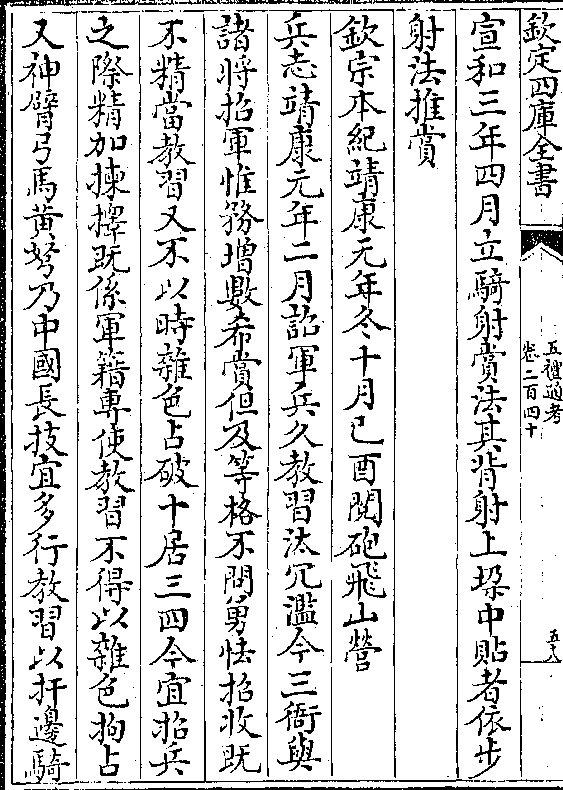 欽定四庫全書
五禮通考
卷二百四十
五十八
宣和三年四月立騎射賞法其背射上垜中貼者依步
射法推賞
欽宗本紀靖康元年冬十月己酉閱砲飛山營
兵志靖康元年二月詔軍兵久教習汰冗濫今三衙與
諸將招軍惟務增數希賞但及等格不問勇怯招收既
不精當教習又不以時雜色占破十居三四今宜招兵
之際精加揀擇既係軍籍專使教習不得以雜色拘占
又神臂弓馬黃弩乃中國長技宜多行教習以扞邊騎